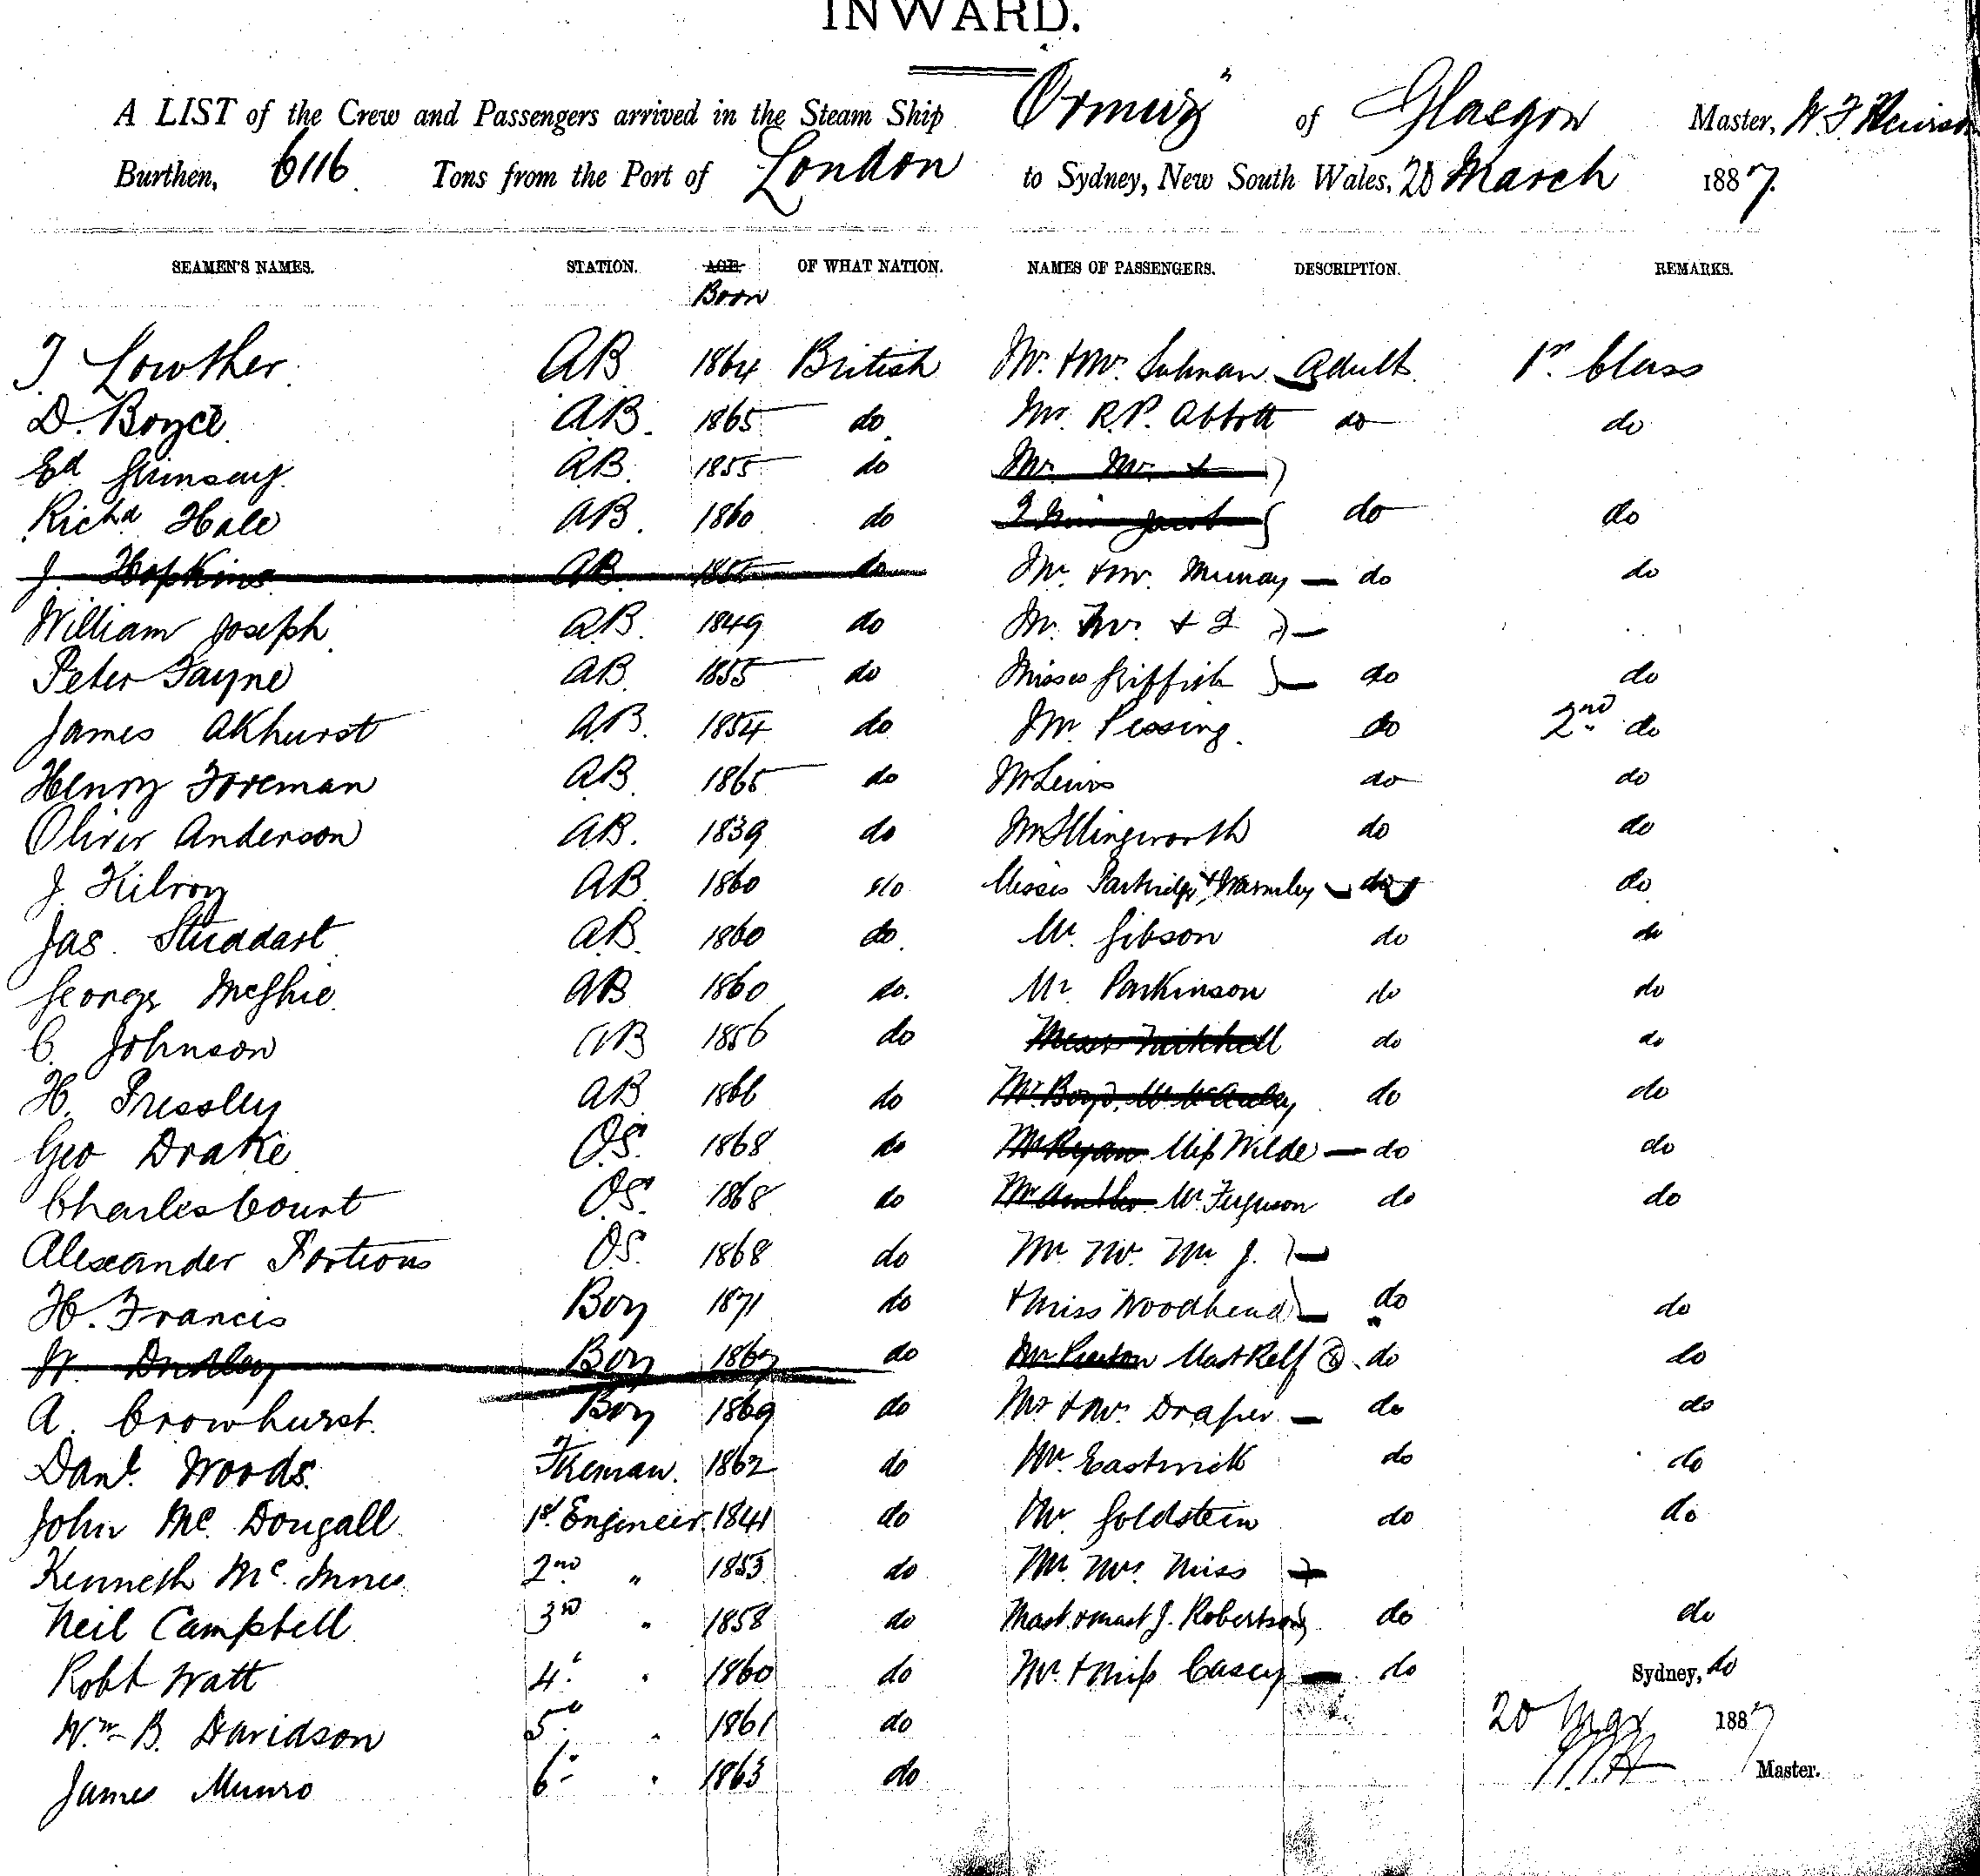 INWARD.
A LIST of the Crew and Passengers arrived in the Steam Ship "Ormuz" of Glasgow Master,
Burthen, 6116 Tons from the Port of London to Sydney, New South Wales, 20 March 1887.
SEAMEN'S NAMES. STATION. AGE. OF WHAT NATION. NAMES OF PASSENGERS. DESCRIPTION. REMARKS.
Born
J Lowther AB 1864 British Mr. & Mrs. Adults 1st Class
D. Boyce AB. 1865 do Mr. R.P. Abbott do do
Ed AB. 1855 do Mr. Mrs. &
Richd Hale AB. 1860 do 2 Miss Jacob do do
J. Hopkins AB. 1855 do Mr. & Mrs. Murray do do
William Joseph AB. 1849 do Mr. Mrs. & 2
Peter Jayne AB. 1855 do Misses Griffith do do
James Akhurst AB. 1854 do Mr. do 2nd do
Henry Foreman AB. 1865 do Mr Lewis do do
Oliver Anderson AB. 1839 do Mr Illingworth do do
J. Kilroy AB 1860 do Misses Partridge & do do
Jas. Studdart AB. 1860 do Mr. Gibson do do
George McGhie AB 1860 do. Mr. Parkinson do do
C. Johnson AB 1856 do Mitchell do do
H. Pressley AB 1866 do Mr. Boyd, Mr. McAuley do do
Geo Drake O.S. 1868 do Mr Ryan Miss Wilde do do
Charles Court O.S. 1868 do Mr. Ferguson do do
Alexander Portious O.S. 1868 do Mr. Mrs. Mr. J.
H. Francis Boy 1871 do & Miss Woodhead do do
W. Dudley Boy 1867 do Mr Preston Mast Relf 8 do do
A. Crowhurst Boy 1869 do Mr & Mrs. Draper do do
Danl. Woods. Fireman. 1862 do Mr. Eastwick do do
John Mc Dougall 1st Engineer 1841 do Mr. Goldstein do do
Kenneth Mc. Innes 2nd " 1853 do Mr. Mrs. Miss
Neil Campbell 3rd " 1858 do Mast. & Mast J. Robertson do do
Robt Watt 4th " 1860 do Mr. & Miss Casey do Sydney, do
Wm. B. Davidson 5th " 1861 do 20 Mar 1887
James Munro 6th " 1863 do Master.